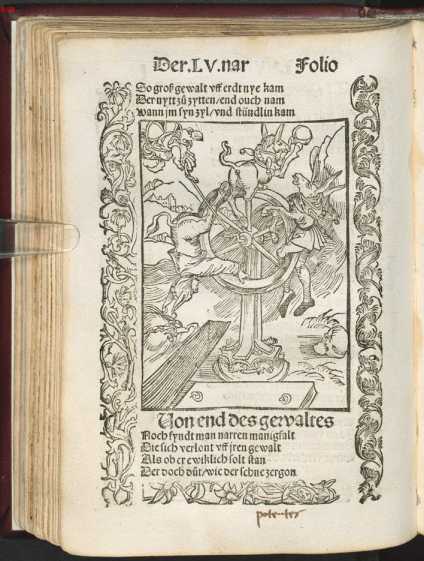 Der.LV.nar Folio
So groß gewalt vff erdt nye kam
Der nytt zů zytten/end ouch nam
Wann jm syn zyl/vnd stündlin kam
Von end des gewaltes
Noch fyndt man narren manigfalt
Die sich verlont vff jren gewalt
Als ob er ewiklich solt stan
Der doch důt/wie der schne zergon
potentes